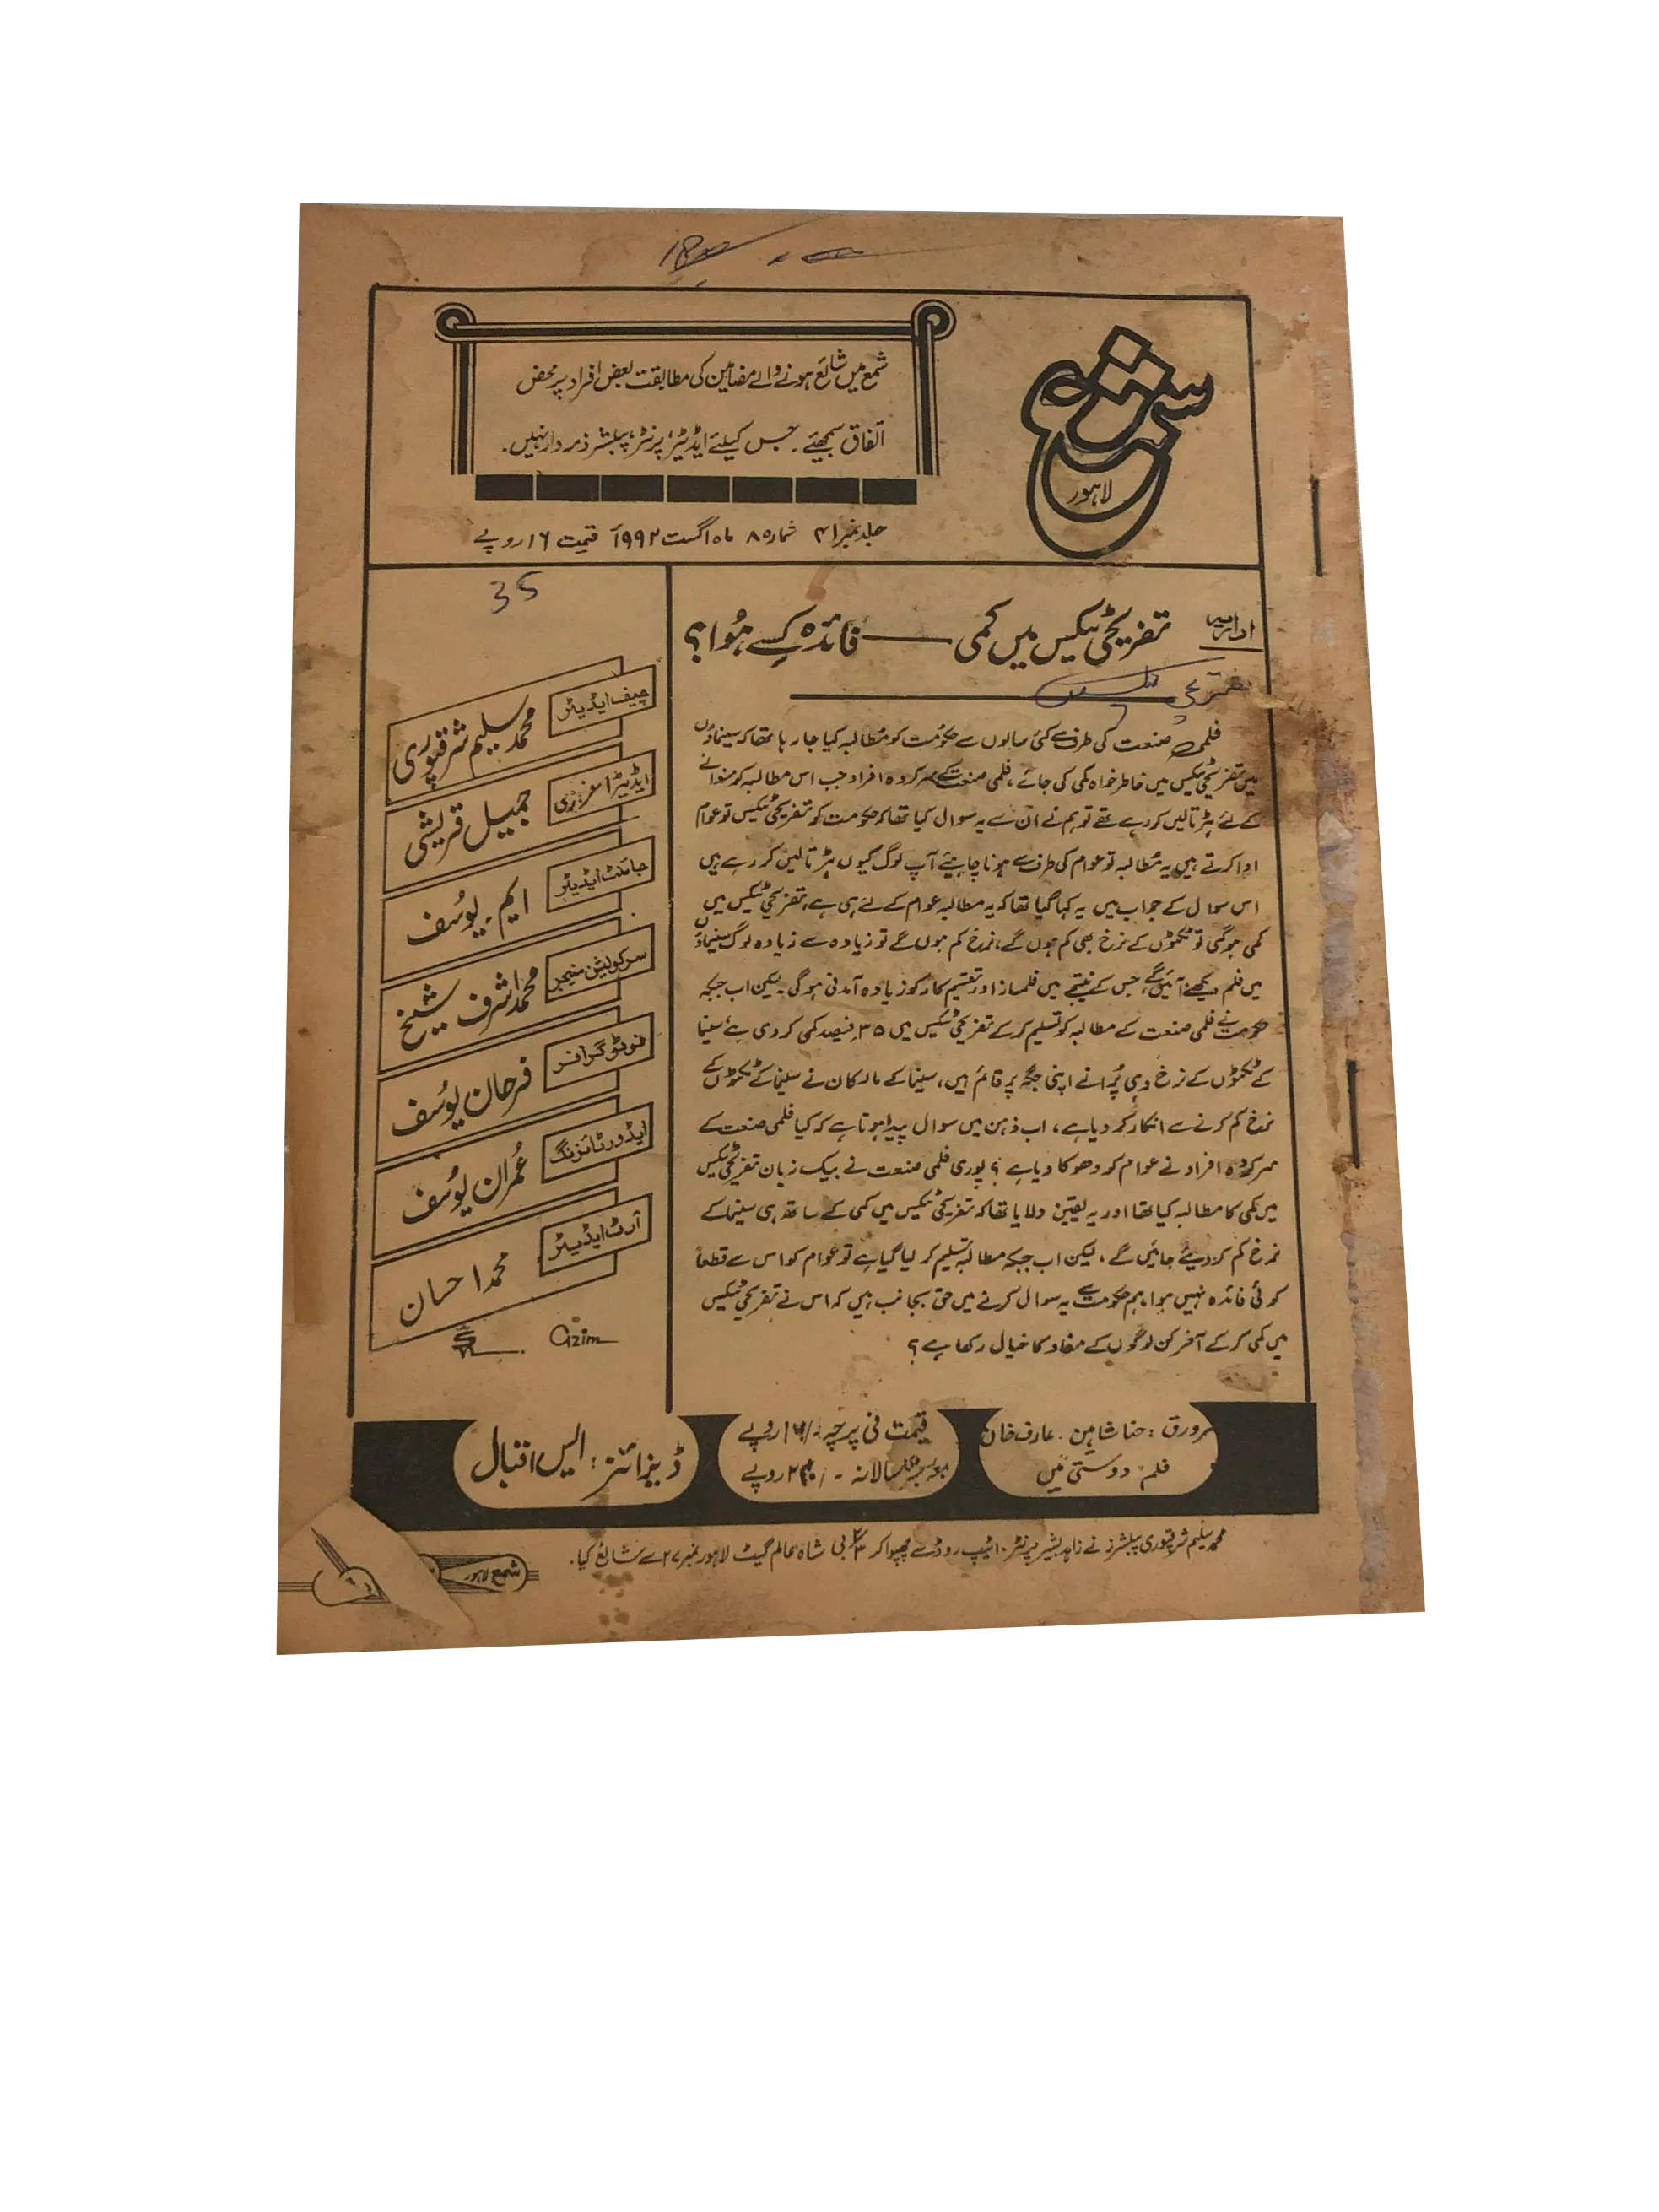 شمع
لاہور
شمع میں شائع ہونے والے مضامین کی مطابقت بعض افراد پر محض
اتفاق سمجھئے۔ جس کیلئے ایڈیٹر، پرنٹر، پبلشر ذمہ دار نہیں۔
جلد نمبر ۴۱ شمارہ ۸ ماہ اگست ۱۹۹۲ء قیمت ۱۶ روپے
اداریہ
تفریحی ٹیکس میں کمی —— فائدہ کسے ہُوا؟
تفریحی ٹیکس
فلمی صنعت کی طرف سے کئی سالوں سے حکومت کو مُطالبہ کیا جا رہا تھا کہ سینماؤں
میں تفریحی ٹیکس میں خاطر خواہ کمی کی جائے، فلمی صنعت کے سرکردہ افراد جب اس مطالبہ کو منوانے
کے لئے ہڑتالیں کر رہے تھے تو ہم نے ان سے یہ سوال کیا تھا کہ حکومت کو تفریحی ٹیکس تو عوام
ادا کرتے ہیں یہ مُطالبہ تو عوام کی طرف سے ہونا چاہیئے آپ لوگ کیوں ہڑتالیں کر رہے ہیں
اس سوال کے جواب میں یہ کہا گیا تھا کہ یہ مطالبہ عوام کے لئے ہی ہے، تفریحی ٹیکس میں
کمی ہوگی تو ٹکٹوں کے نرخ بھی کم ہوں گے، نرخ کم ہوں گے تو زیادہ سے زیادہ لوگ سینماؤں
میں فلم دیکھنے آئیں گے، جس کے نتیجے میں فلمساز اور تقسیم کار کو زیادہ آمدنی ہوگی۔ لیکن اب جبکہ
حکومت نے فلمی صنعت کے مطالبہ کو تسلیم کر کے تفریحی ٹیکس میں ۳۵ فیصد کمی کر دی ہے سینما
کے ٹکٹوں کے نرخ وہی پُرانے اپنی جگہ پر قائم ہیں، سینما کے مالکان نے سینما کے ٹکٹوں کے
نرخ کم کرنے سے انکار کر دیا ہے، اب ذہن میں سوال پیدا ہوتا ہے کہ کیا فلمی صنعت کے
سرکردہ افراد نے عوام کو دھوکا دیا ہے؟ پوری فلمی صنعت نے بیک زبان تفریحی ٹیکس
میں کمی کا مطالبہ کیا تھا اور یہ یقین دلایا تھا کہ تفریحی ٹیکس میں کمی کے ساتھ ہی سینما کے
نرخ کم کر دیئے جائیں گے، لیکن اب جبکہ مطالبہ تسلیم کر لیا گیا ہے تو عوام کو اس سے قطعاً
کوئی فائدہ نہیں ہوا، ہم حکومت سے یہ سوال کرنے میں حق بجانب ہیں کہ اس نے تفریحی ٹیکس
میں کمی کر کے آخر کن لوگوں کے مفاد کا خیال رکھا ہے؟
35
چیف ایڈیٹر
محمد سلیم شرقپوری
ایڈیٹر اعزازی
جمیل قریشی
جائنٹ ایڈیٹر
ایم۔ یوسُف
سرکولیشن منیجر
محمد اشرف شیخ
فوٹو گرافر
فرحان یوسُف
ایڈورٹائزنگ
عُمران یوسُف
آرٹ ایڈیٹر
محمد احسان
azim
سرورق: حنا شاہین۔ عارف خان
فلم "دوستی" میں
قیمت فی پرچہ -/۱۶ روپے
سالانہ -/ روپے
ڈیزائنر: ایس اقبال
محمد سلیم شرقپوری پبلشرز نے زاہد بشیر پرنٹر۔ اٹیپ روڈ سے چھپوا کر بی شاہ عالم گیٹ لاہور نمبر ۲ سے شائع کیا۔
شمع لاہور